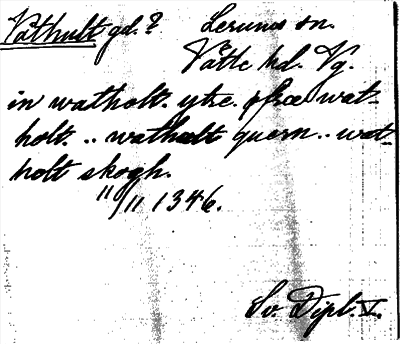 Vathult gd.? Lerums sn.
Vätte hd. Vg.
in watholt. ytre. øfræ wat-
holt. .. watholt quern .. wat-
holt skogh.
11/11 1346.
Sv. Dipl. V.